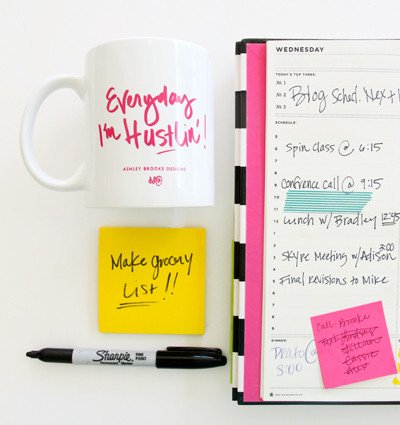 Everyday
I'm Hustlin'!
ASHLEY BROOKE DESIGNS
Make grocery
List!!
Sharpie
FINE POINT
Permanent Marker
WEDNESDAY
TODAY'S TOP THREE:
No 1
No 2
No 3
Blog Sched. Next
SCHEDULE:
5
6
Spin Class @ 6:15
7
8
9
Confrence call @ 9:15
10
11
12
Lunch w/ Bradley 12:45
1
2
3
Skype Meeting w/Adison 3:00
4
Final revisions to Mike
5
6
7
8
DINNER:
@
8:00
Call Brooke